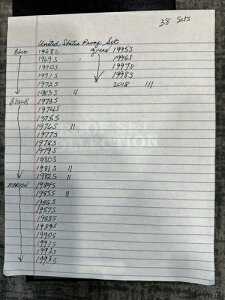 38 Sets
United States Proof Set
Blue 1968S green 1995S
1969S 1996S
1970S 1997S
1971S 1998S
1972S 2018 III
1973S II
Black 1973S
1974S
1975S
1976S II
1977S
1978S
1979S
1980S
1981S II
1982S II
maroon 1984S
1985S II
1986S
1987S
1988S
1989S
1990S
1991S
1992S
1993S